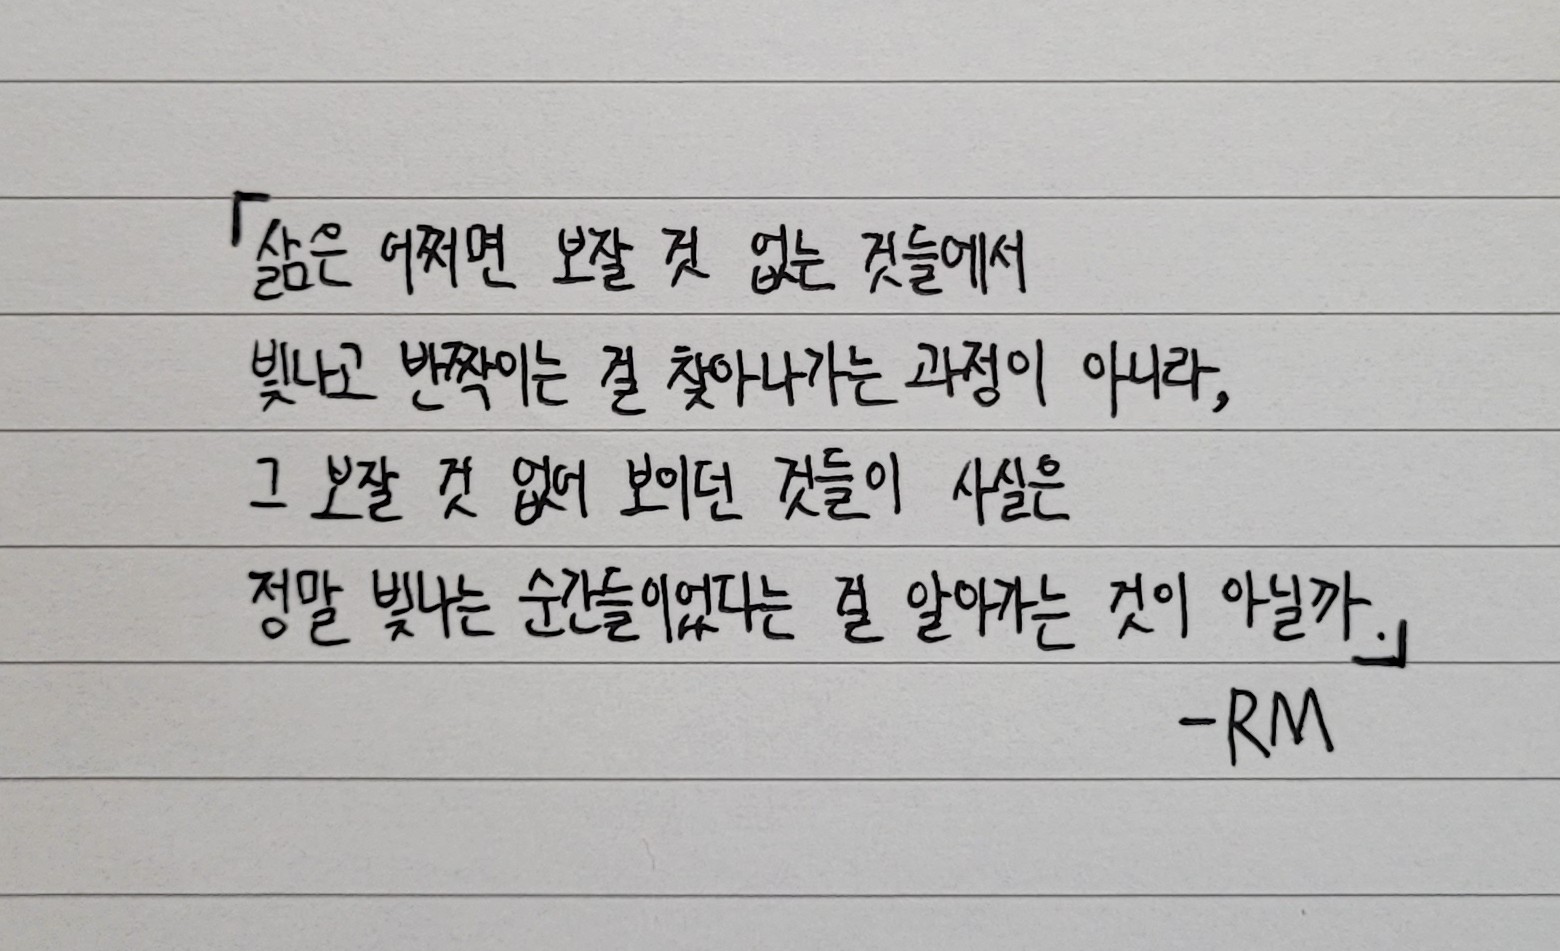 「삶은 어쩌면 보잘 것 없는 것들에서
빛나고 반짝이는 걸 찾아나가는 과정이 아니라,
그 보잘 것 없어 보이던 것들이 사실은
정말 빛나는 순간들이었다는 걸 알아가는 것이 아닐까.」
-RM